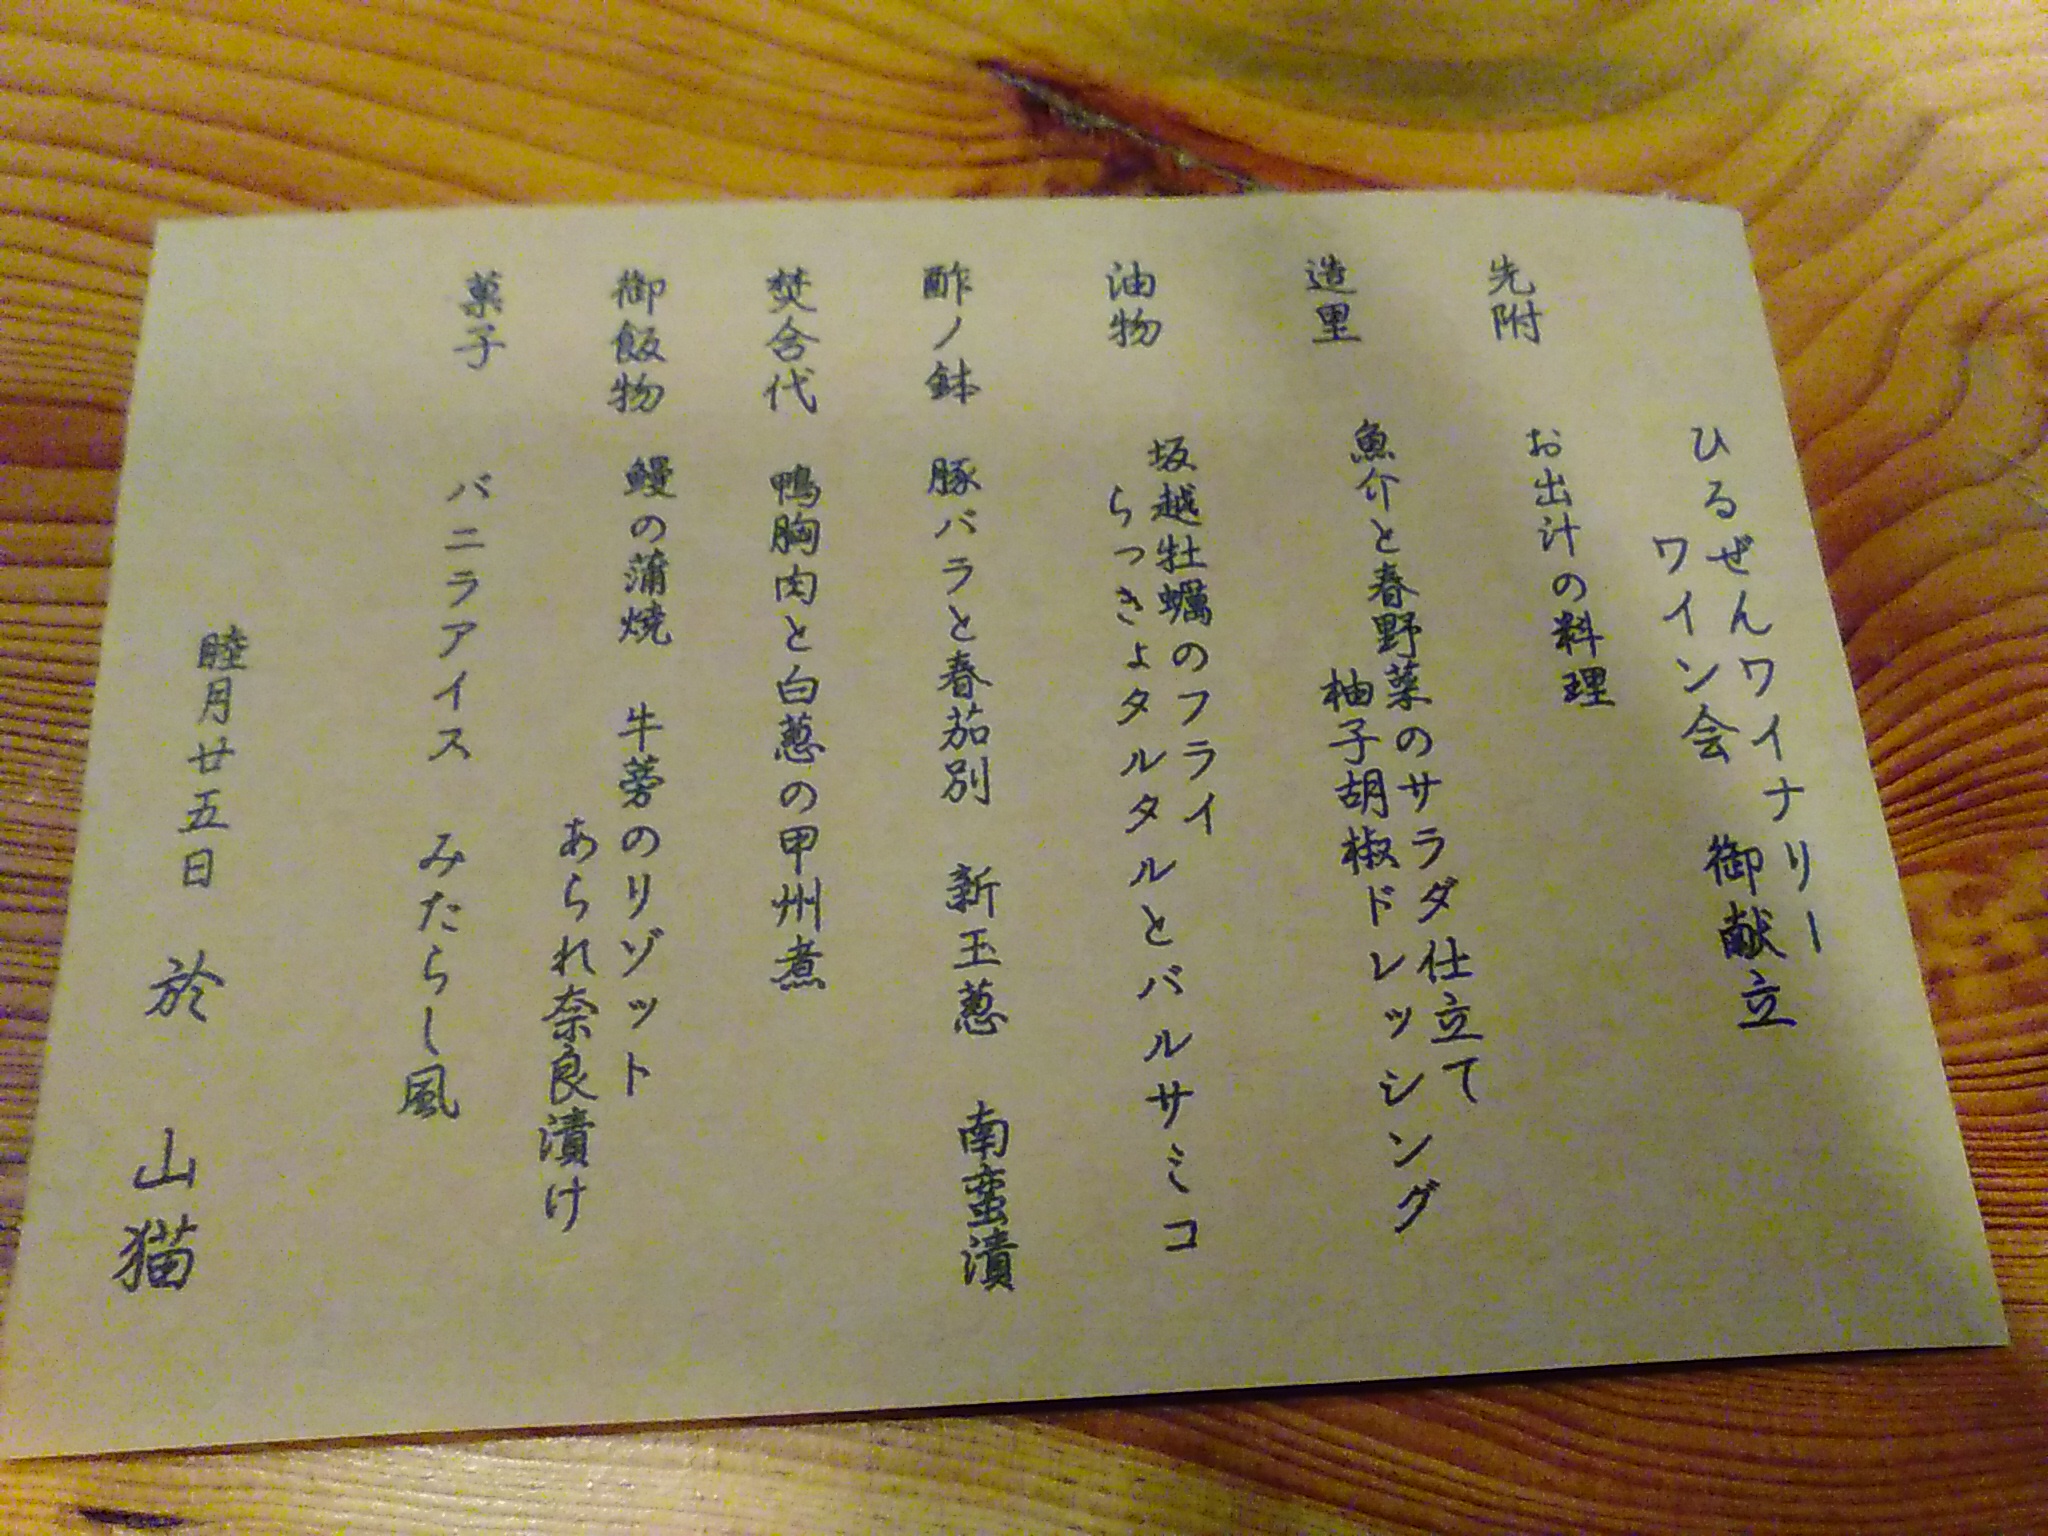 ひるぜんワイナリー
ワイン会 御献立
先附 お出汁の料理
造里 魚介と春野菜のサラダ仕立て
柚子胡椒ドレッシング
油物 坂越牡蠣のフライ
らっきょタルタルとバルサミコ
酢ノ鉢 豚バラと春茄別 新玉葱 南蛮漬
焚合代 鴨胸肉と白葱の甲州煮
御飯物 鰻の蒲焼 牛蒡のリゾット
あられ奈良漬け
菓子 バニラアイス みたらし風
睦月廿五日 於 山猫